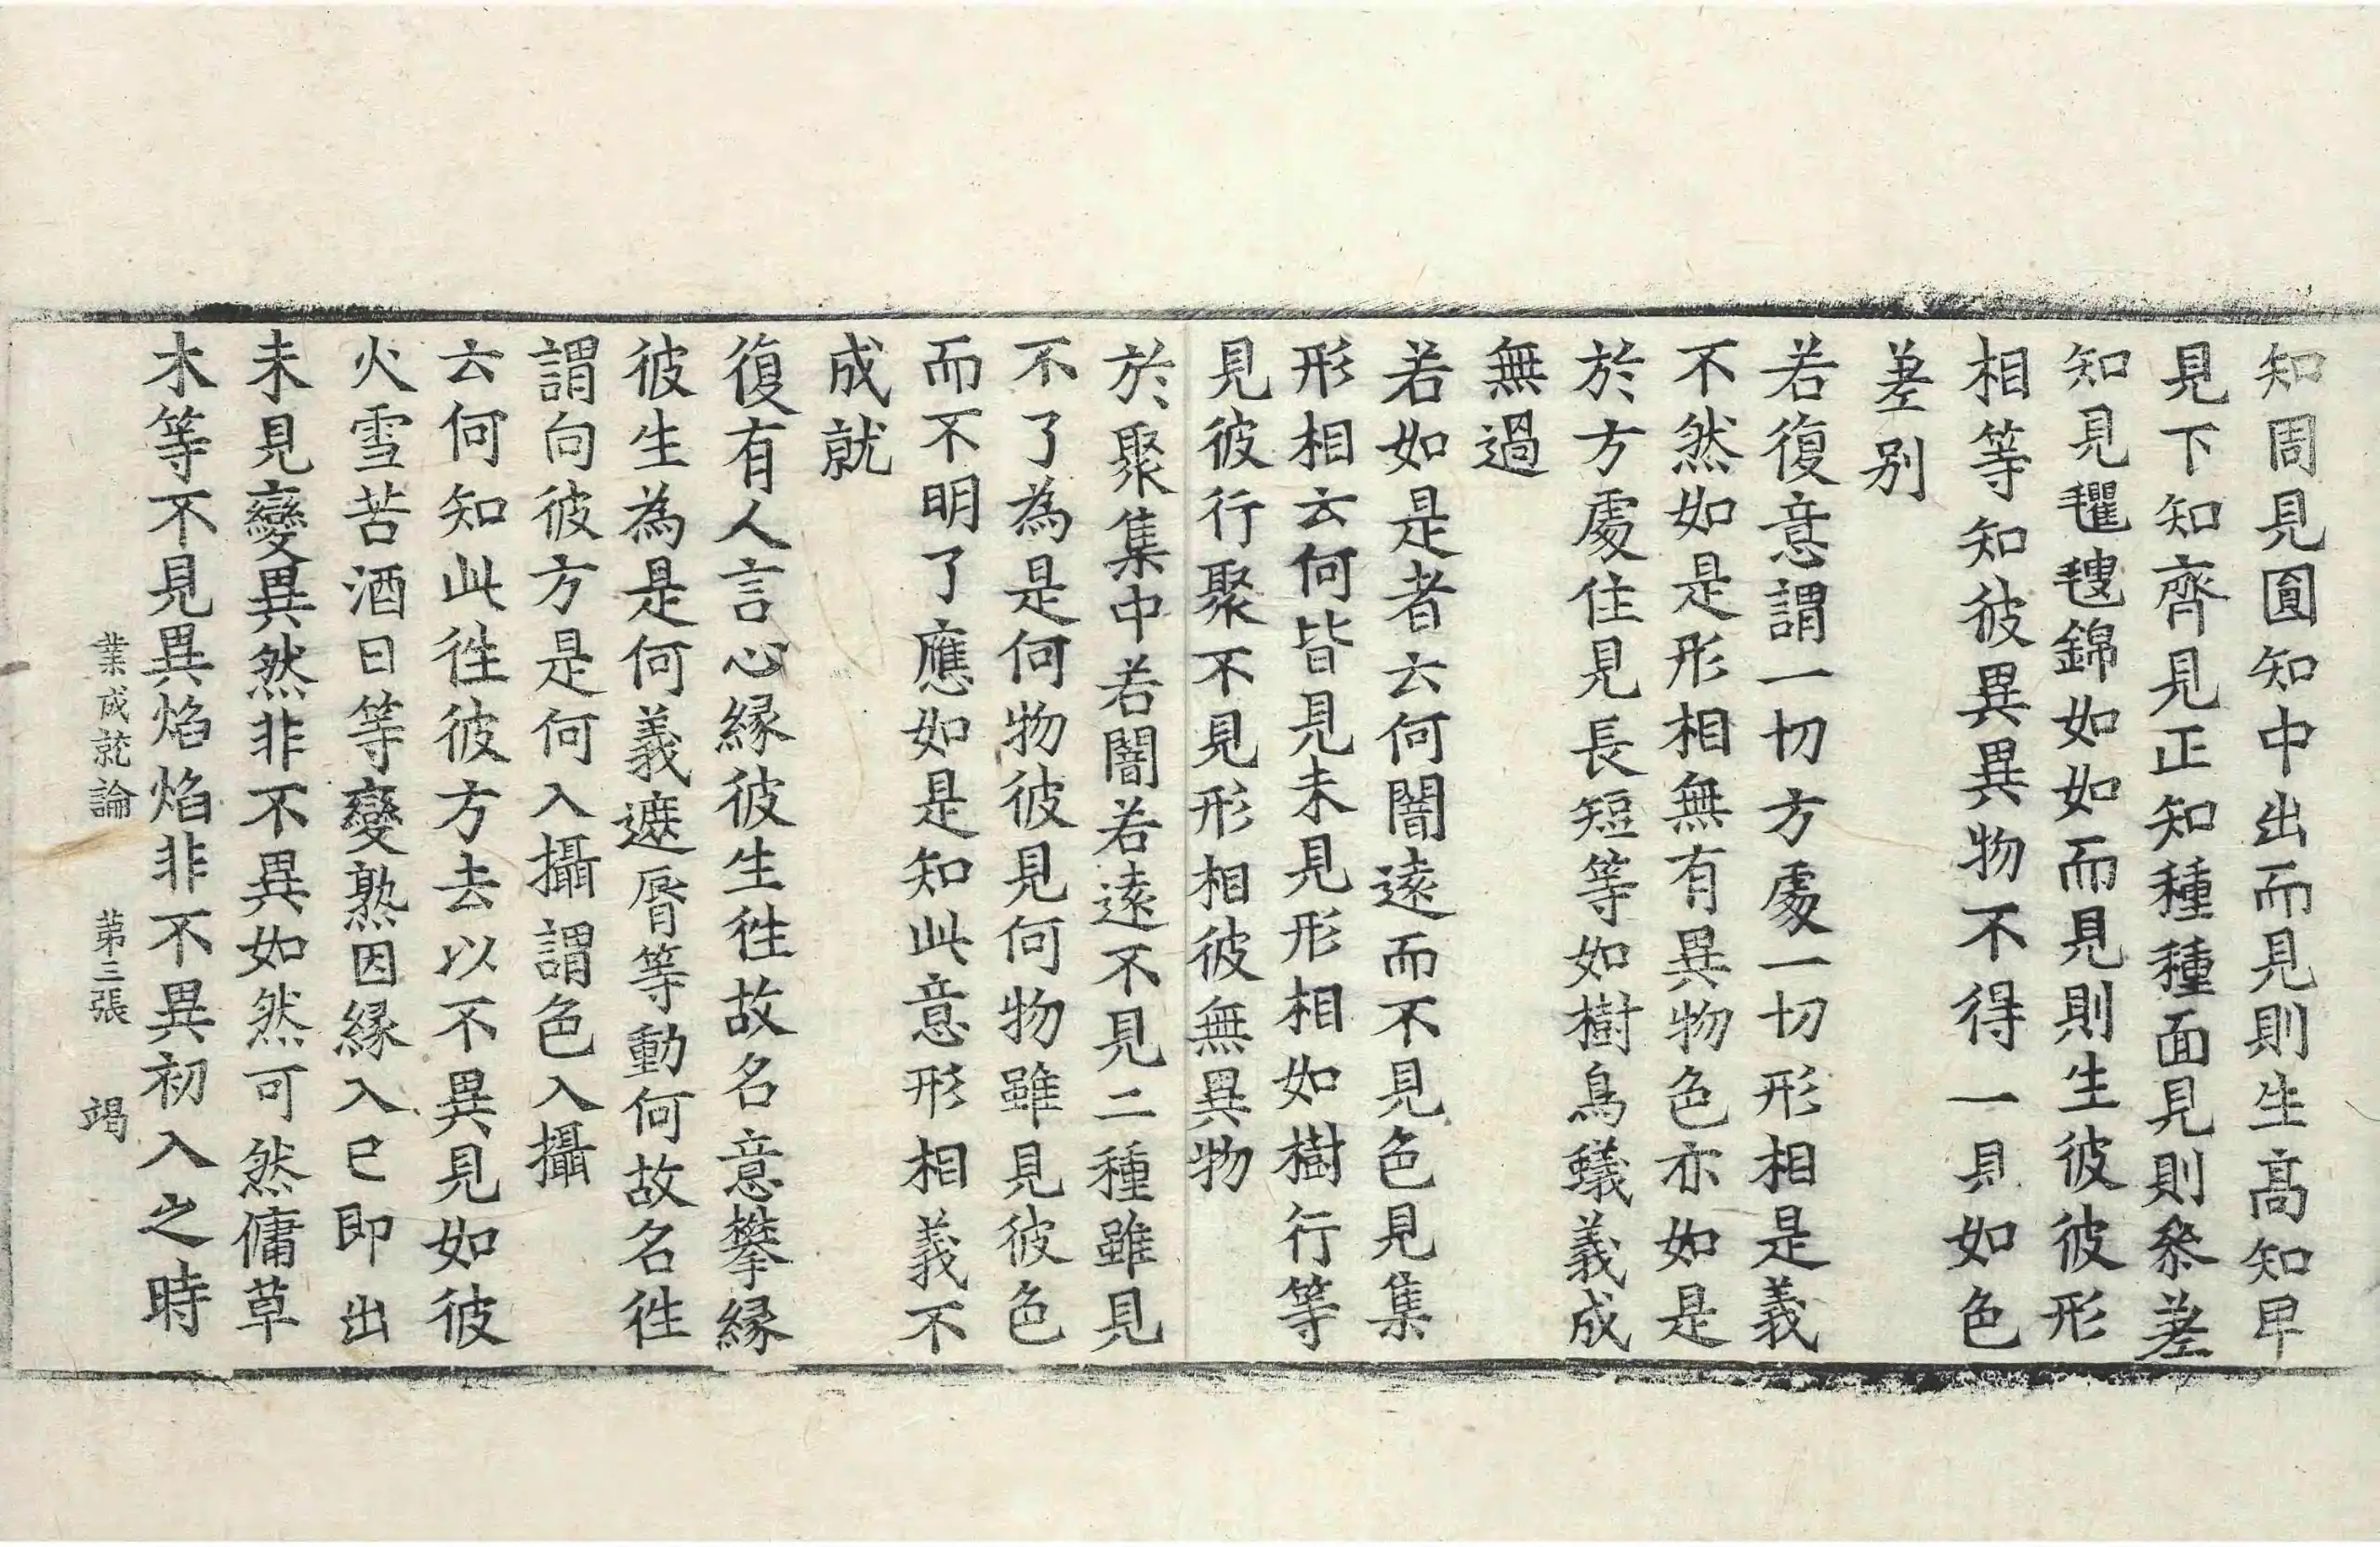 知周見圓知中出而見則生髙知𤰞
見下知齊見正知種種面見則叅差
知見氍毺錦如如而見則生彼彼形
相等知彼異異物不得一具如色
差别
若復意謂一切方處一切形相是義
不然如是形相無有異物色亦如是
於方處住見長短等如樹鳥蟻義成
無過
若如是者云何闇逺而不見色見集
形相云何皆見未見形相如樹行等
見彼行聚不見形相彼無異物
於聚集中若闇若逺不見二種雖見
不了為是何物彼見何物雖見彼色
而不明了應如是知此意形相義不
成就
復有人言心縁彼生徃故名意攀縁
彼生為是何義遮脣等動何故名徃
謂向彼方是何入攝謂色入攝
云何知此徃彼方去以不異見如彼
火雪苦酒日等變熟因縁入已即出
未見變異然非不異如然可然傭草
木等不見異焰焰非不異初入之時
業成就論　苐三張　竭